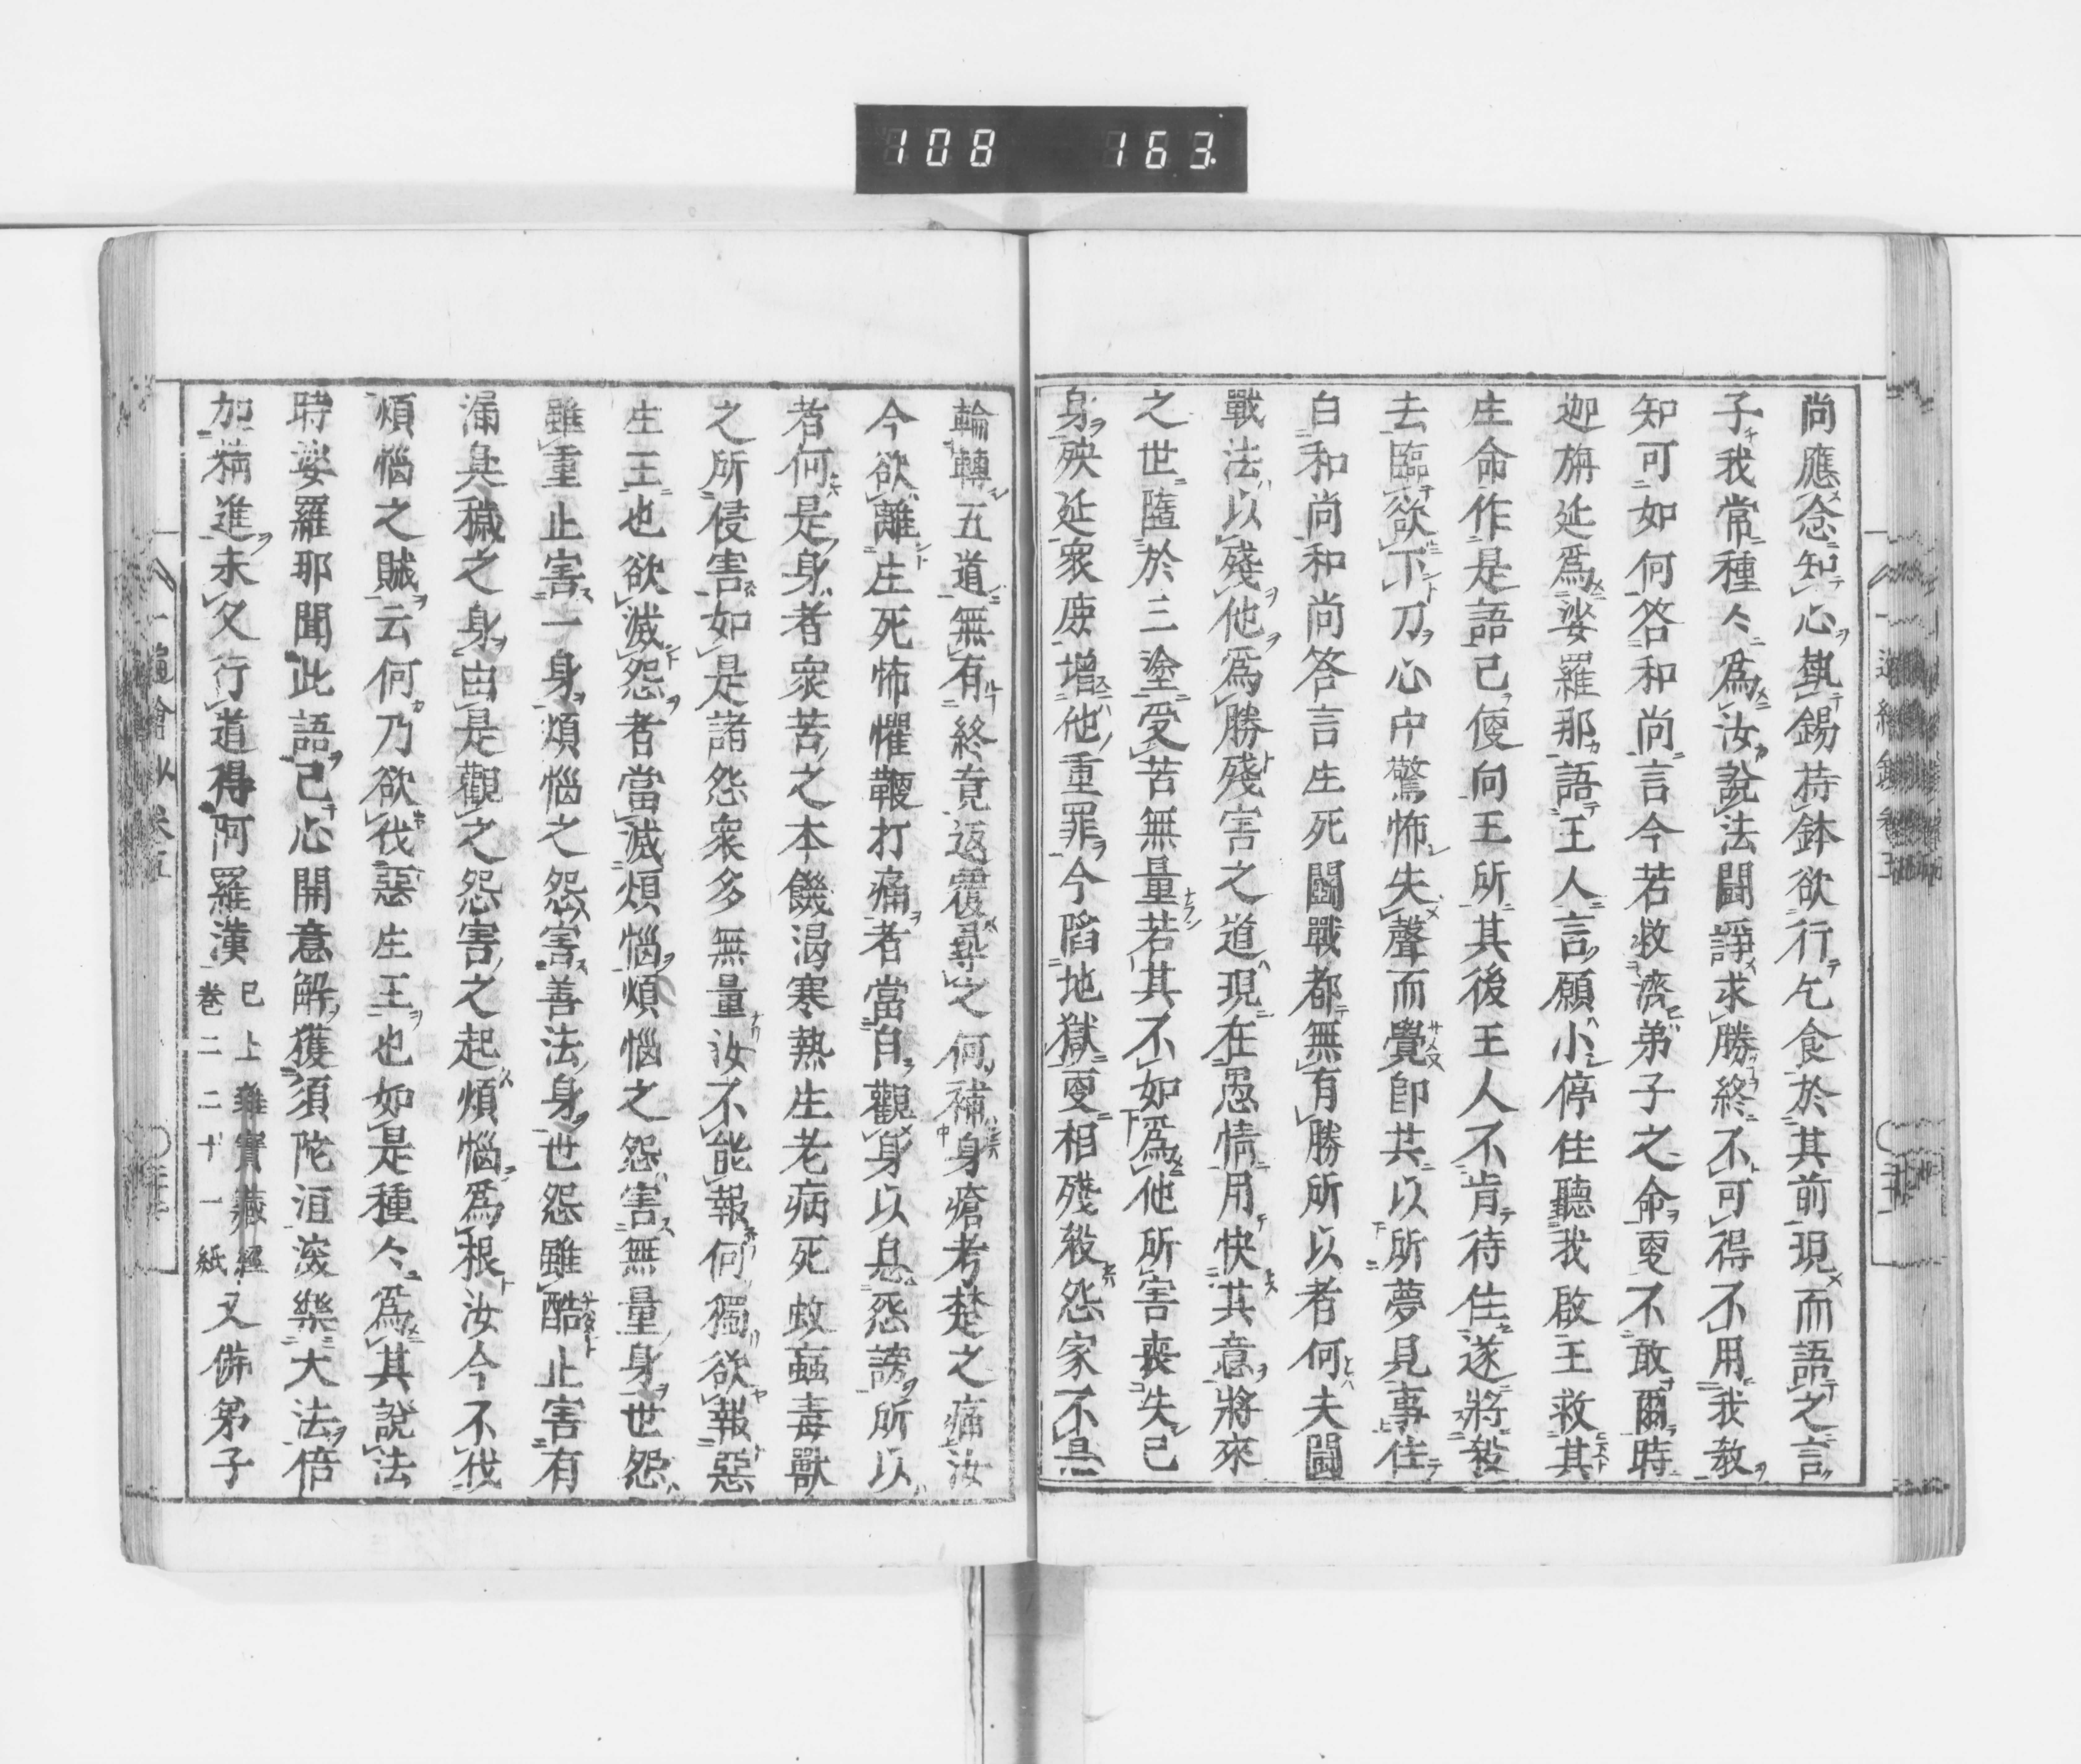 108 163
尚應念知心執錫持鉢欲行乞食於其前現而語之言
子我常種々爲汝說法鬪諍求勝終不可得不用我教
知可如何答和尚言今若救濟弟子之命更不敢爾時
迦旃延爲娑羅那語王人言願小停住聽我啟王救其
生命作是語已便向王所其後王人不肯待住遂將殺
去臨欲下刀心中驚怖失聲而覺卽其以所夢見事往
白和尚和尚答言生死鬪戰都無有勝所以者何夫鬪
戰法以殘他爲勝殘害之道現在愚情用快其意將來
之世墮於三塗受苦無量若其不如爲他所害喪失已
身殃延衆庶增他重罪令陷地獄更相殘殺怨家不息
輪轉五道無有終竟返覆尋之何補身瘡考楚之痛汝
今欲離生死怖懼鞭打痛者當自觀身以息怨謗所以
者何是身者衆苦之本飢渴寒熱生老病死蚊虻毒獸
之所侵害如是諸怨衆多無量汝不能報何獨欲報惡
生王也欲滅怨者當滅煩惱煩惱之怨害無量身世怨
雖重止害一身煩惱之怨害善法身世怨雖酷止害有
漏臭穢之身由是觀之怨害之起煩惱爲根汝今不伐
煩惱之賊云何乃欲伐惡生王也如是種々爲其說法
時娑羅那聞此語已心開意解獲須陀洹深樂大法倍
加精進未久行道得阿羅漢 已上雜寶藏經卷二二十一紙 又佛弟子